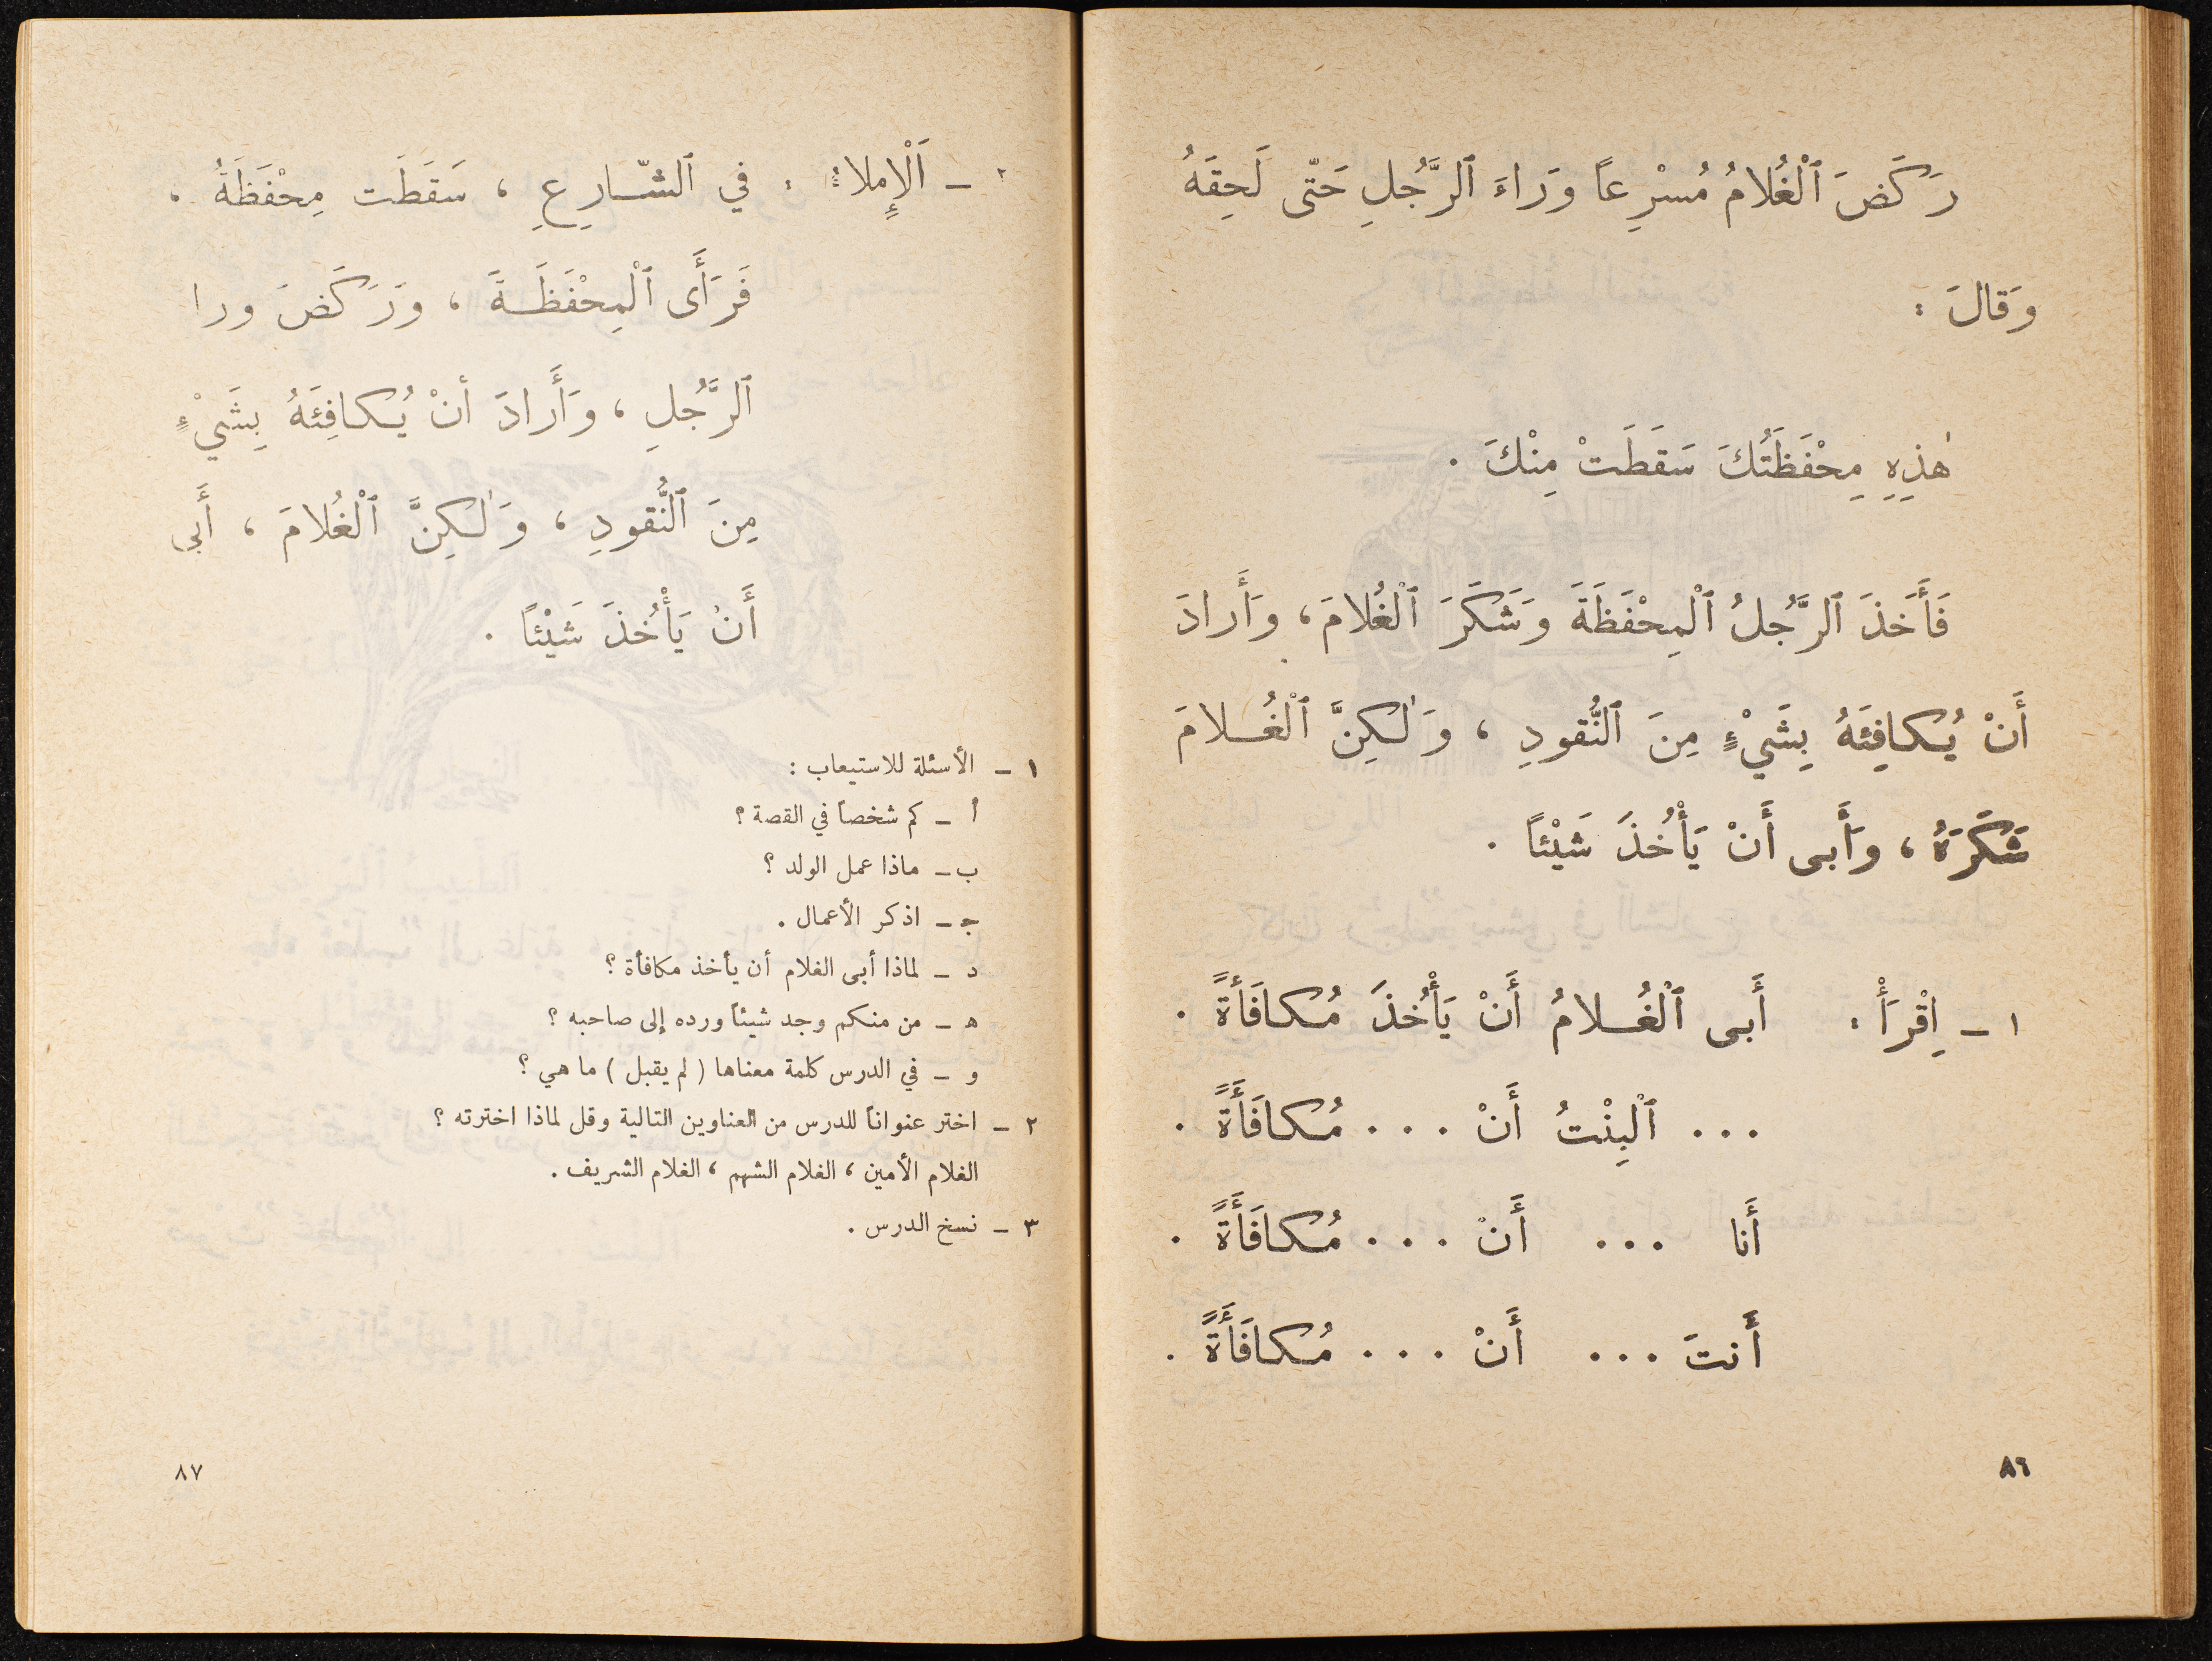 رَكَضَ ٱلْغُلامُ مُسْرِعاً وَراءَ ٱلرَّجُلِ حَتّى لَحِقَهُ
وَقالَ :
هٰذِهِ مِحْفَظَتُكَ سَقَطَتْ مِنْكَ .
فَأَخَذَ ٱلرَّجُلُ ٱلْمِحْفَظَةَ وَشَكَرَ ٱلْغُلامَ ، وَأَرادَ
أَنْ يُكافِئَهُ بِشَيْءٍ مِنَ ٱلنُّقودِ ، وَلٰكِنَّ ٱلْغُلامَ
شَكَرَهُ ، وَأَبى أَنْ يَأْخُذَ شَيْئاً .
١ – اِقْرَأْ : أَبى ٱلْغُلامُ أَنْ يَأْخُذَ مُكافَأَةً .
... ٱلْبِنْتُ أَنْ ... مُكافَأَةً .
أَنا ... أَنْ ... مُكافَأَةً .
أَنتَ ... أَنْ ... مُكافَأَةً .
٨٦
٢ – اَلْإِملاءُ : في ٱلشّارِعِ ، سَقَطَت مِحْفَظَةُ ،
فَرَأَى ٱلْمِحْفَظَةَ ، وَرَكَضَ ورا
ٱلرَّجُلِ ، وَأَرادَ أنْ يُكافِئَهُ بِشَيْءٍ
مِنَ ٱلنُّقودِ ، وَلٰكِنَّ ٱلْغُلامَ ، أَبى
أَنْ يَأْخُذَ شَيْئاً .
١ – الأسئلة للاستيعاب :
أ – كم شخصاً في القصة ؟
ب – ماذا عمل الولد ؟
ج – اذكر الأعمال .
د – لماذا أبى الغلام أن يأخذ مكافأة ؟
ه – من منكم وجد شيئاً ورده إلى صاحبه ؟
و – في الدرس كلمة معناها ( لم يقبل ) ما هي ؟
٢ – اختر عنواناً للدرس من العناوين التالية وقل لماذا اخترته ؟
الغلام الأمين ، الغلام الشهم ، الغلام الشريف .
٣ – نسخ الدرس .
٨٧